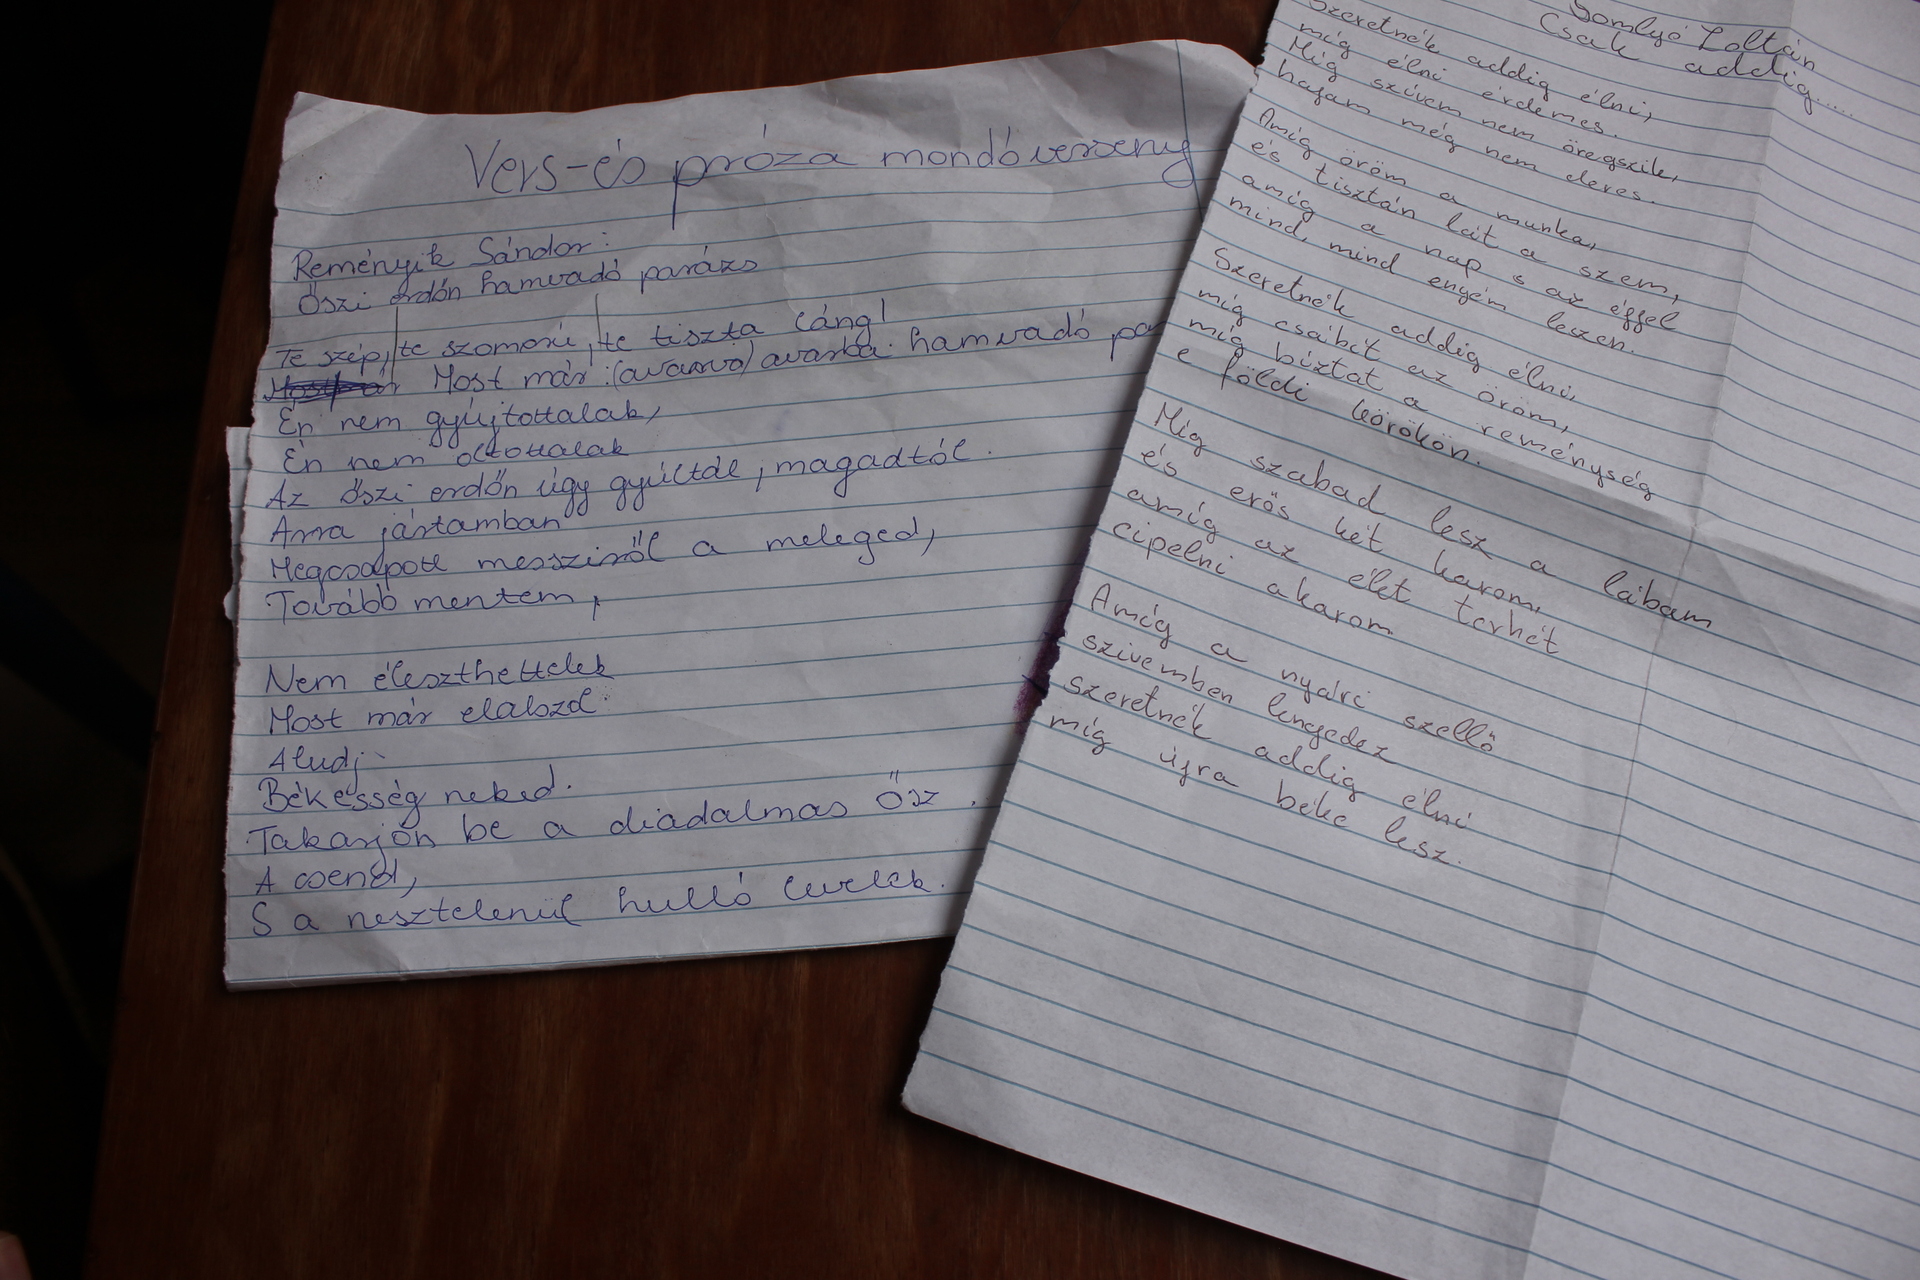 Vers-és próza mondóverseny
Reményik Sándor:
Őszi erdőn hamvadó parázs
Te szép, te szomorú, te tiszta láng!
Most már (avarva) avarba hamvadó pa
Én nem gyújtottalak,
Én nem oltottalak
Az őszi erdőn úgy gyúltál, magadtól.
Arra jártamban
Megcsapott messziről a meleged,
Tovább mentem,
Nem éleszthettelek
Most már elalszol.
Aludj
Békesség neked.
Takarjon be a diadalmas Ősz.
A csend,
S a nesztelenül hulló levelek.
Somlyó Zoltán
Csak addig....
Szeretnék addig élni,
míg élni érdemes.
Míg szívem nem öregszik,
hajam még nem deres.
Amíg öröm a munka,
és tisztán lát a szem,
amíg a nap s az éjjel
mind, mind engém leszen.
Szeretnék addig élni,
míg csábít az öröm,
míg bíztat a reménység
e földi körökön.
Míg szabad lesz a lábam
és erős két karom,
amíg az élet terhét
cipelni akarom
Amíg a nyári szellő
szivemben lengedez
szeretnék addig élni
míg újra béke lesz.